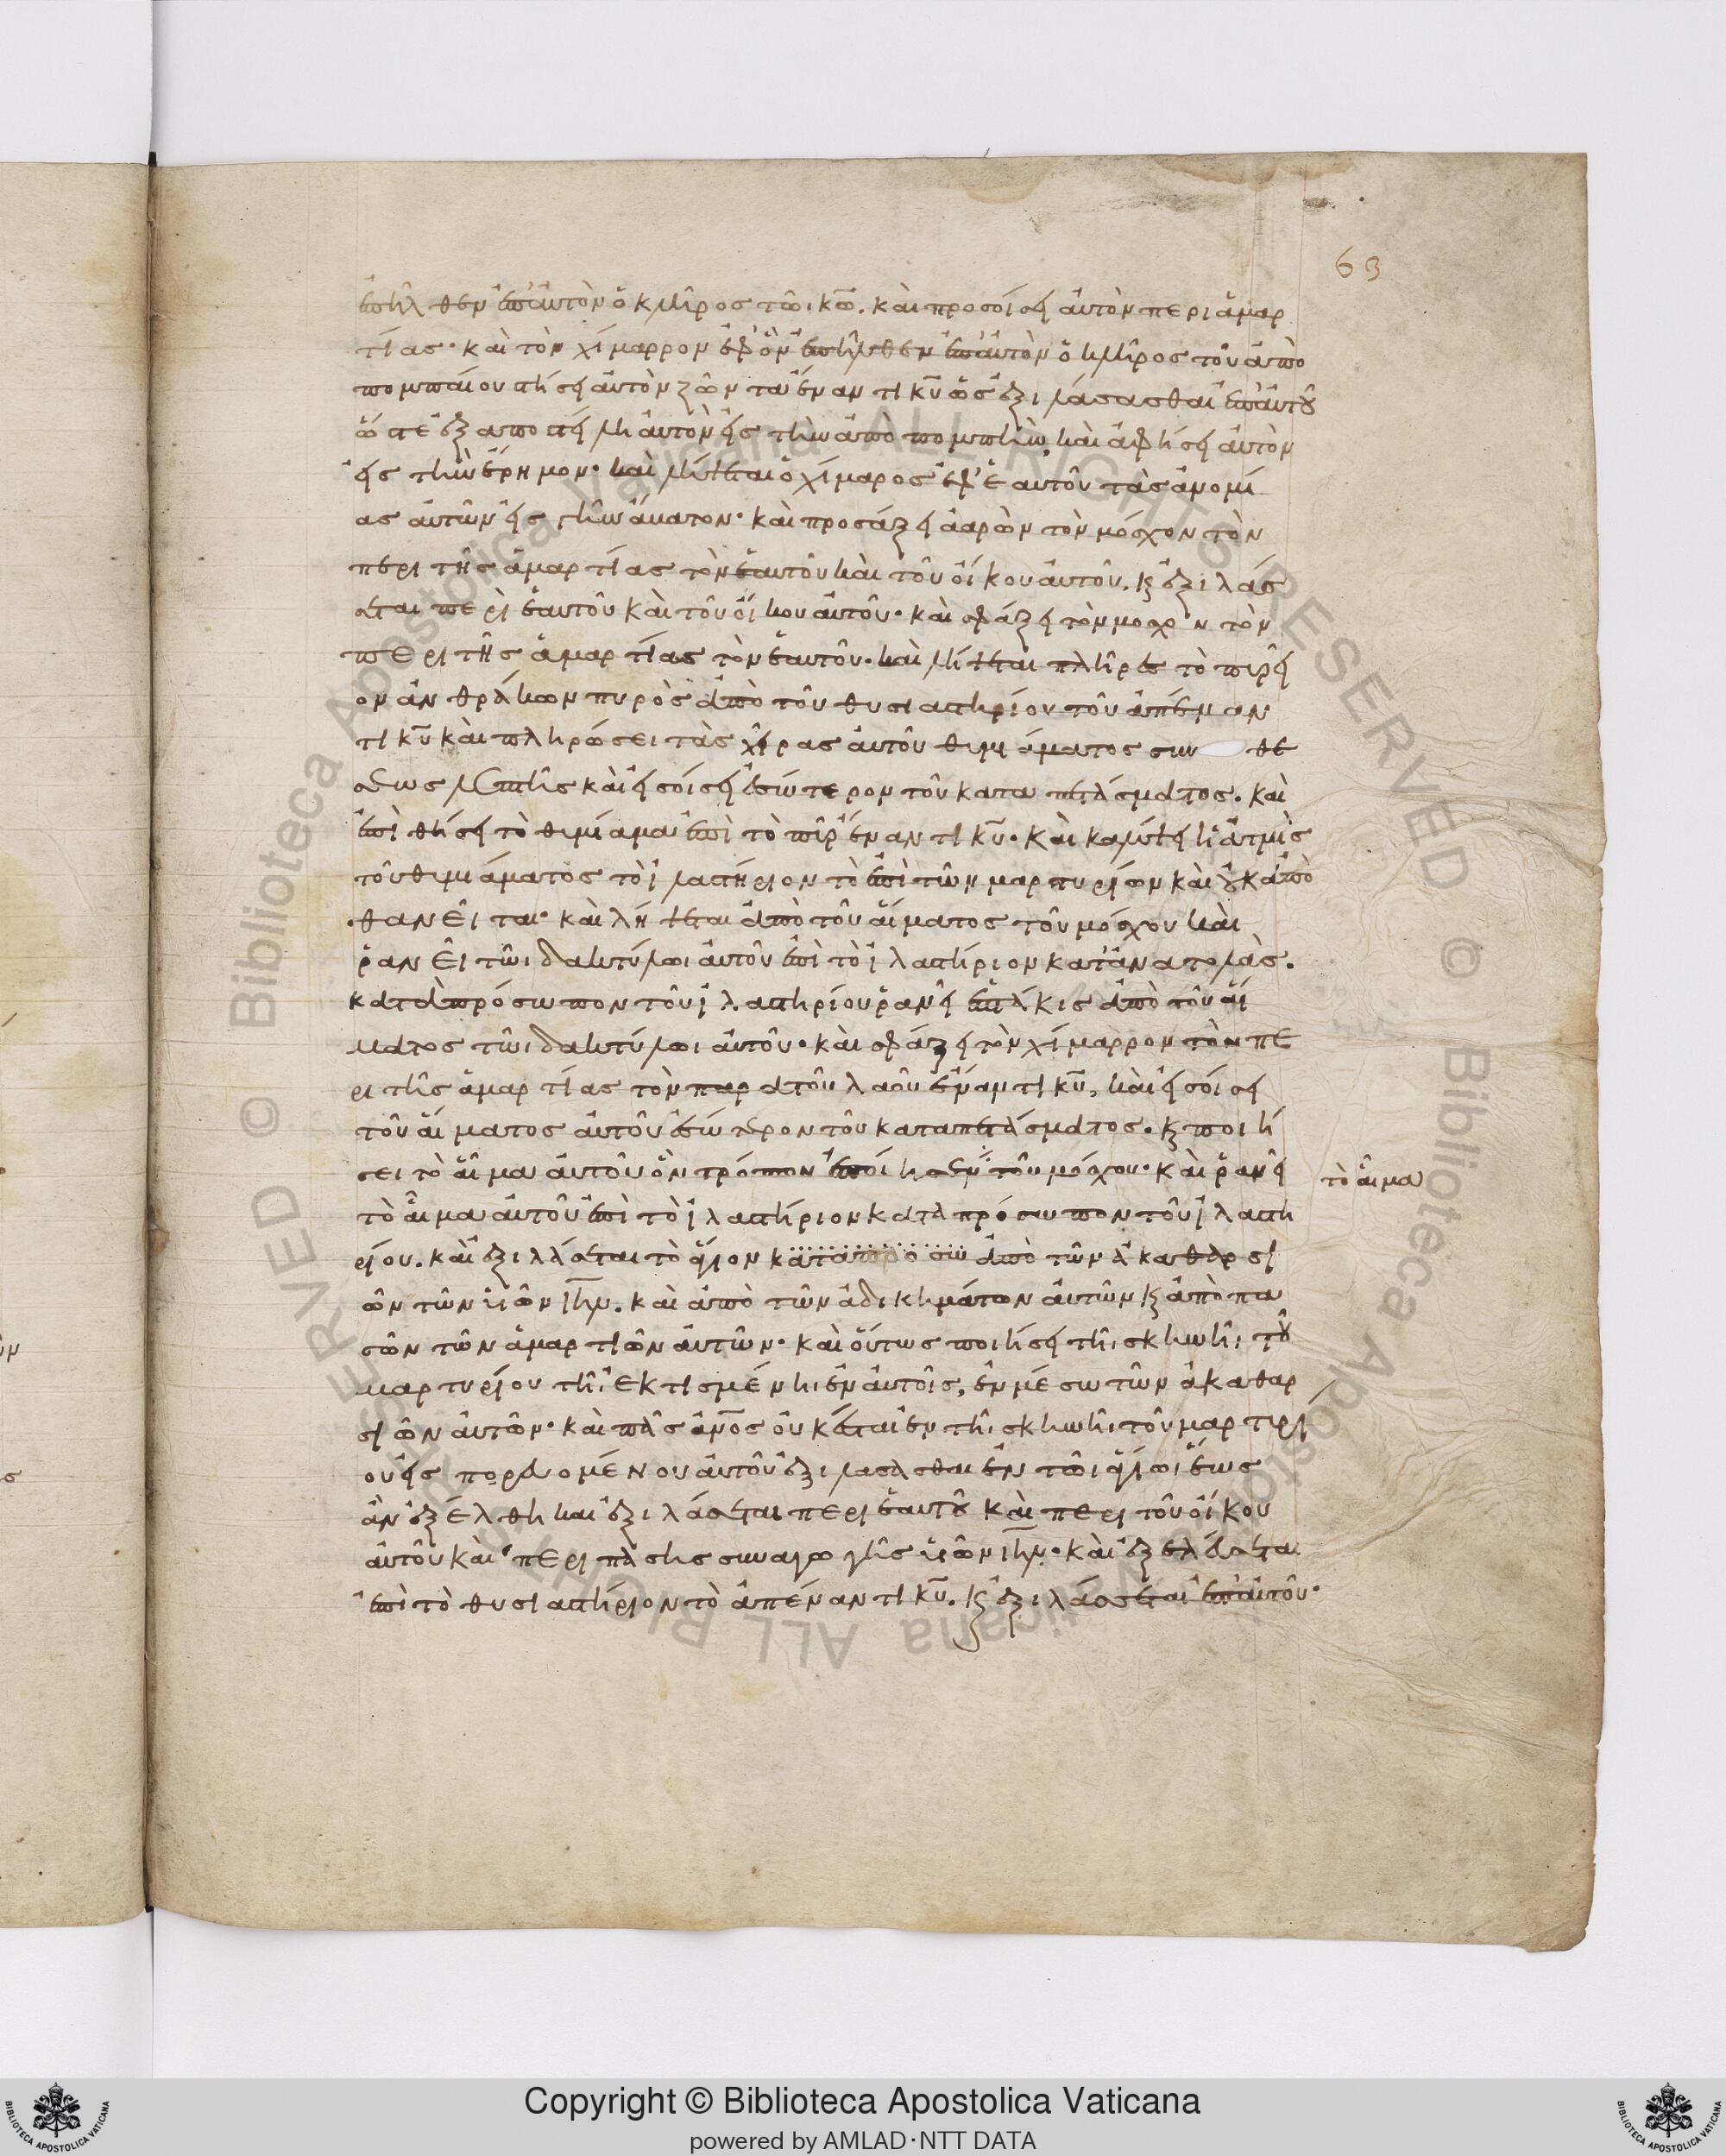 63
ἐπῆλθεν ἐπ' αὐτὸν ὁ κλῆρος τῶι κω. καὶ προσοίσει αὐτὸν περι ἁμαρ
τίας· καὶ τὸν χίμαρρον ἐφ' ὃν ἐπῆλθεν ἐπ' αὐτὸν ὁ κλῆρος τοῦ ἀπο
πομπαίου στήσει αὐτὸν ζῶντα ἔναντι κυ ὡς ἐξιλάσασθαι ἐπ' αὐτοῦ
ὥστε ἐξαποστεῖλαι αὐτὸν εἰς τὴν ἀποπομπὴν, καὶ ἀφήσει αὐτὸν
εἰς τὴν ἔρημον· καὶ λήψεται ὁ χίμαρος ἐφ' ἑαυτοῦ τὰς ἀνομί
ας αὐτῶν εἰς γῆν ἄβατον· καὶ προσάξει ἀαρὼν τὸν μόσχον τὸν
περι τῆς ἁμαρτίας τὸν ἑαυτοῦ καὶ τοῦ οἴκου αὐτοῦ. κ ἐξιλάσ
εται περὶ ἑαυτοῦ καὶ τοῦ οἴκου αὐτοῦ· καὶ σφάξει τὸν μοσχον τὸν
περι τῆς ἁμαρτίας τὸν ἑαυτοῦ· καὶ λήψεται πλῆρες τὸ πυρεῖ
ον ἀνθράκων πυρὸς ἀπὸ τοῦ θυσιαστηρίου τοῦ ἀπέναν
τι κυ καὶ πλήρώσει τὰς χεῖρας αὐτοῦ θυμιάματος συν θέ
σεως λεπτῆς καὶ εἰσοίσει ἐσώτερον τοῦ καταπετάσματος. καὶ
ἐπιθήσει τὸ θυμίαμα ἐπὶ τὸ πῦρ ἔναντι κυ· καὶ καλύψει ἡ ἀτμὶς
τοῦ θυμιάματος τὸ ἱλαστήριον τὸ ἐπὶ τῶν μαρτυρίων καὶ οὐκ ἀπο
θανεῖται· καὶ λήψεται ἀπὸ τοῦ αἵματος τοῦ μόσχου καὶ
ῥανεῖ τῶι δακτύλωι αὐτοῦ ἐπὶ τὸ ἱλαστήριον κατ' ἀνατολὰς.
κατὰ πρόσωπον τοῦ ἱλαστηρίου ῥανεῖ ἑπτάκις ἀπὸ τοῦ αἵ
ματος τῶι δακτύλωι αὐτοῦ· καὶ σφάξει τὸν χίμαρρον τὸν πε
ρι τῆς ἁμαρτίας τὸν παρα τοῦ λαοῦ ἔναντι κυ, καὶ εἰσοίσει
τοῦ αἵματος αὐτοῦ ἐσώτερον τοῦ καταπετάσματος. κ ποιή
σει τὸ αἷμα αὐτοῦ ὃν τρόπον ἐποίησεν τοῦ μόσχου· καὶ ῥανεῖ
τὸ αἷμα
τὸ αἷμα αὐτοῦ ἐπὶ τὸ ἱλαστήριον κατα πρόσωπον τοῦ ἱλαστη
ρίου. καὶ ἐξιλάσεται τὸ ἅγιον κατα προσω ἀπὸ τῶν ἀκαθαρσι
ῶν τῶν υἱῶν ιηλ. καὶ ἀπὸ τῶν ἀδικημάτων αὐτῶν κ ἀπὸ πα
σῶν τῶν ἁμαρτιῶν αὐτῶν· καὶ οὕτως ποιήσει τῆι σκηνῆι τοῦ
μαρτυρίου τῆι ἐκτισμένηι ἐν αὐτοῖς, ἐν μέσω τῶν ἀκαθαρ
σιῶν αὐτῶν· καὶ πᾶς ανος οὐκ ἔσται ἐν τῆι σκηνῆι τοῦ μαρτυρί
ου εἰσπορευομένου αὐτοῦ ἐξιλάσασθαι ἐν τῶι ἁγίωι ἕως
ἂν ἐξέλθη καὶ ἐξιλάσεται περι ἑαυτοῦ καὶ περι τοῦ οἴκου
αὐτοῦ καὶ περι πάσης συναγωγῆς υἱῶν ιηλ· καὶ ἐξελεύσεται
ἐπὶ τὸ θυσιαστήριον τὸ ἀπέναντι κυ. κ ἐξιλάσεται ἐπ' αὐτοῦ·
Copyright © Biblioteca Apostolica Vaticana
powered by AMLAD·NTT DATA